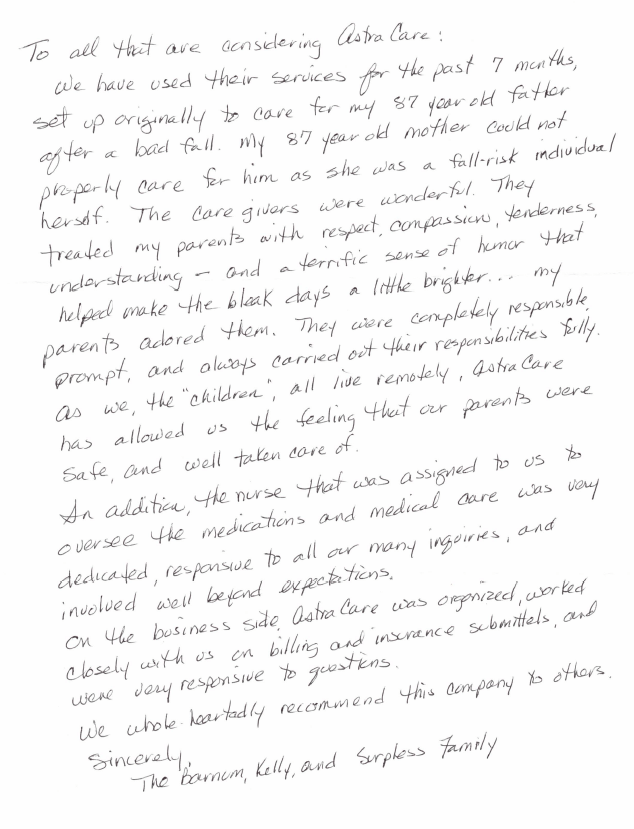 To all that are considering Astra Care:
We have used their services for the past 7 months,
set up originally to care for my 87 year old father
after a bad fall. My 87 year old mother could not
properly care for him as she was a fall-risk individual
herself. The care givers were wonderful. They
treated my parents with respect, compassion, tenderness,
understanding - and a terrific sense of humor that
helped make the bleak days a little brighter... my
parents adored them. They were completely responsible,
prompt, and always carried out their responsibilities fully.
As we, the "children", all live remotely, Astra Care
has allowed us the feeling that our parents were
safe, and well taken care of.
In addition, the nurse that was assigned to us to
oversee the medications and medical care was very
dedicated, responsive to all our many inquiries, and
involved well beyond expectations.
On the business side, Astra Care was organized, worked
closely with us on billing and insurance submittels, and
were very responsive to questions.
We whole-heartadly recommend this company to others.
Sincerely,
The Barnum, Kelly, and Surpless Family